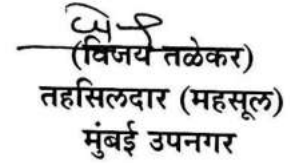 (विजय तळेकर)
तहसिलदार (महसूल)
मुंबई उपनगर